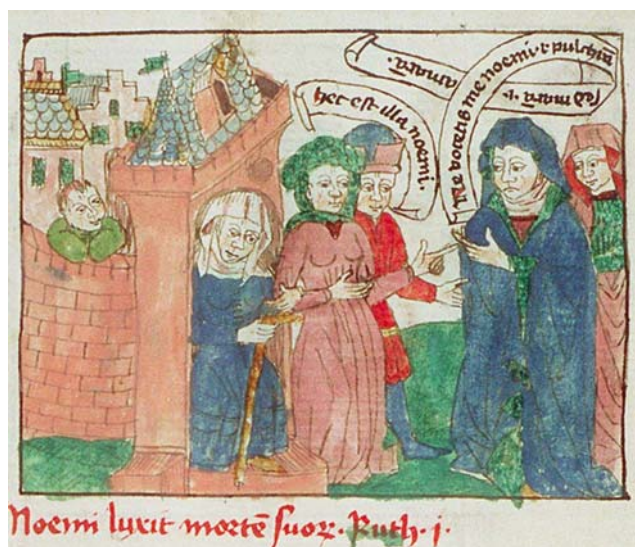 hec est illa noemi.
Ne vocetis me noemi .i. pulchrā
sed mara .i.
amarā.
Noemi luxit mortē suoꝝ. Ruth. j.